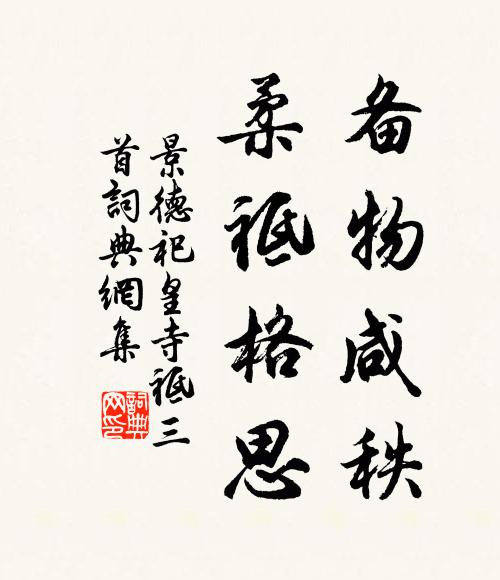 备物咸秩
柔祇格思
景德祀皇寺祇三
首詞典網集
詞典网印